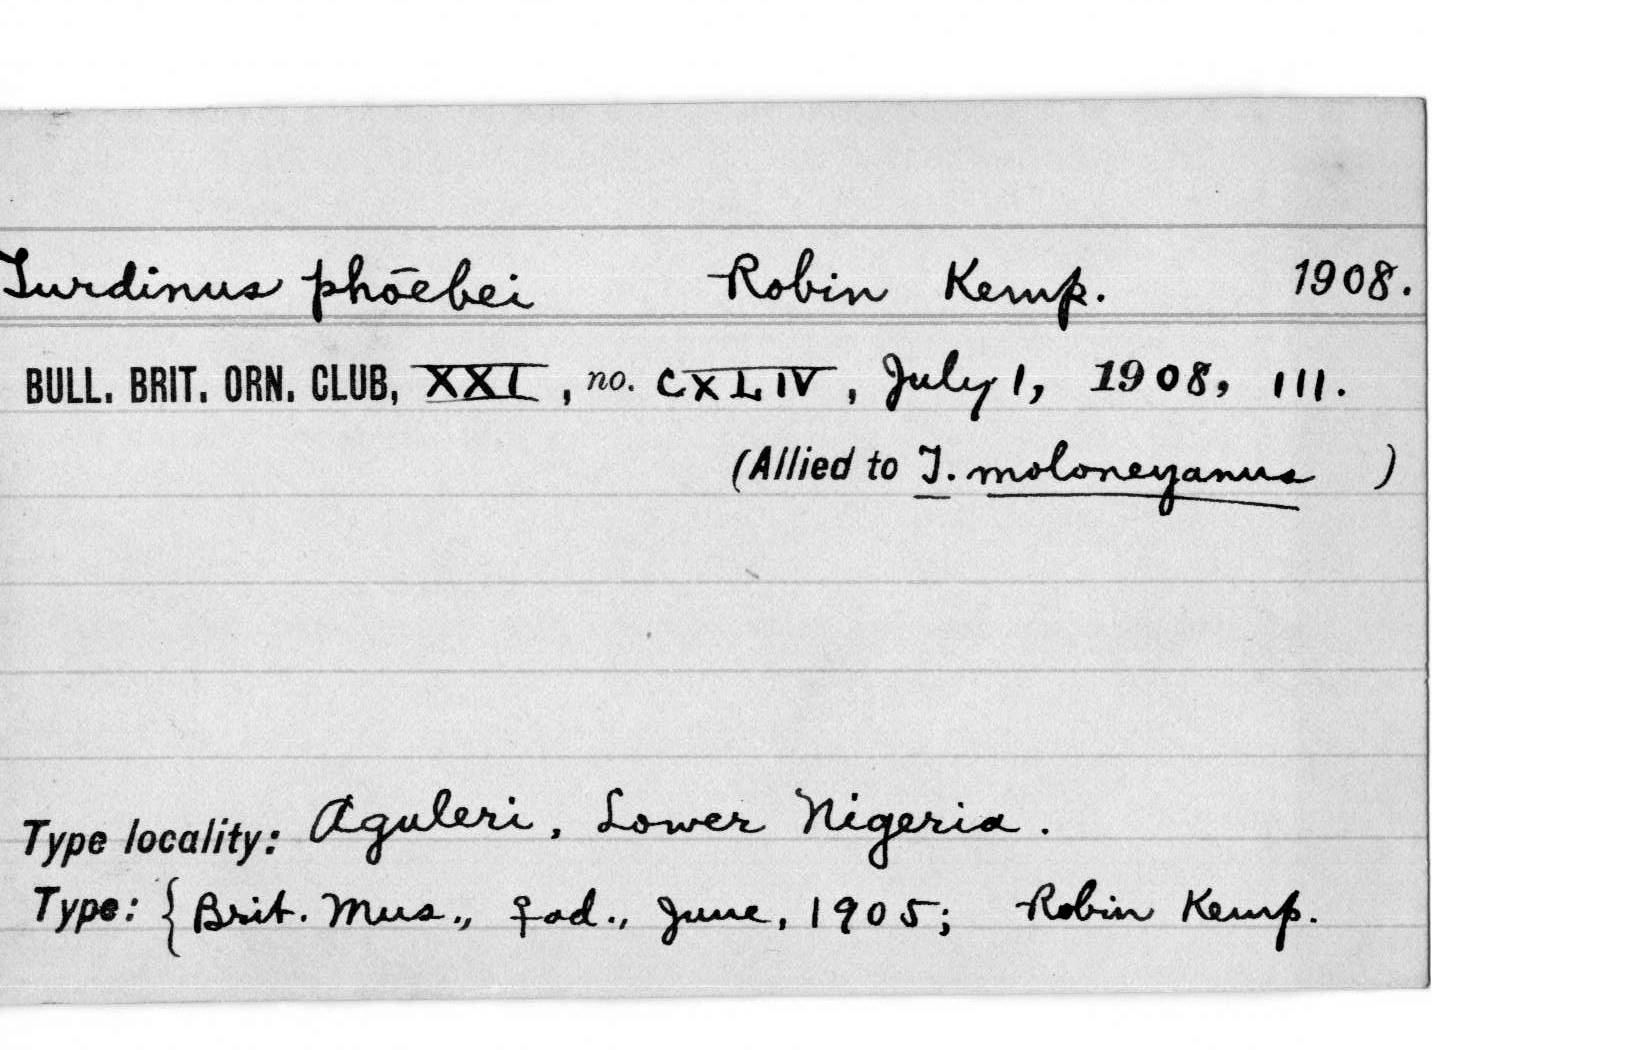 Turdinus phōebei Robin Kemp. 1908.
BULL. BRIT. ORN. CLUB, XXI, no. CXLIV, July 1, 1908, 111.
(Allied to T. moloneyanus )
Type locality: Aguleri, Lower Nigeria.
Type: {Brit. Mus., ♀ ad., June, 1905; Robin Kemp.